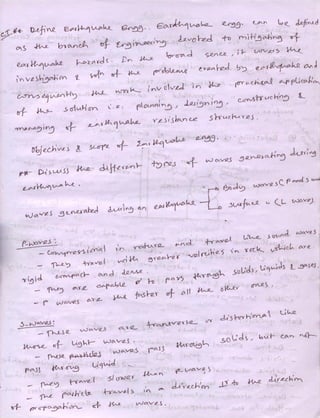 Define Earthquake Engg. Earthquake engg. can be defined
as the branch of Engineering devoted to mitigating of
earthquake hazards. In the broad sence, it covers the
investigation & soln of the problems created by earthquake and
consequently the work involved in the practical application
of the solution i.e. planning, designing, constructing &
managing of earthquake resistance structures.
Objectives & scope of Earthquake engg.
** Discuss the different types of waves generating during
earthquake.
Waves generated during an earthquake
Body waves (P and S
Surface (L waves)
P-waves:
- Compressional in nature and travel like sound waves
- They travel with greater velocities in rock which are
rigid compact and dense
- They are capable to pass through solids, liquids & gases.
- P waves are the faster of all the other ones.
S-waves:
- These waves are transverse or distortional like
those of light waves.
- These waves pass through solids, but can not
pass through liquid.
- They travel slower than P waves.
- The particle travels in a direction to the direction
of propagation of the waves.